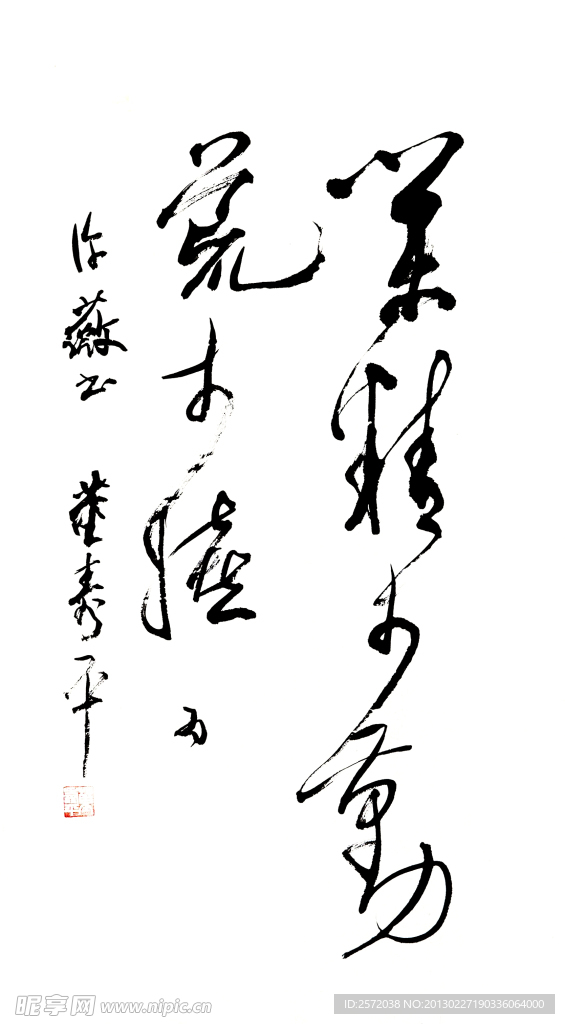 業精于勤
荒于嬉 为
许薇书 董寿平
昵享网 www.nipic.cn
ID:2572038 NO:20130227190336064000